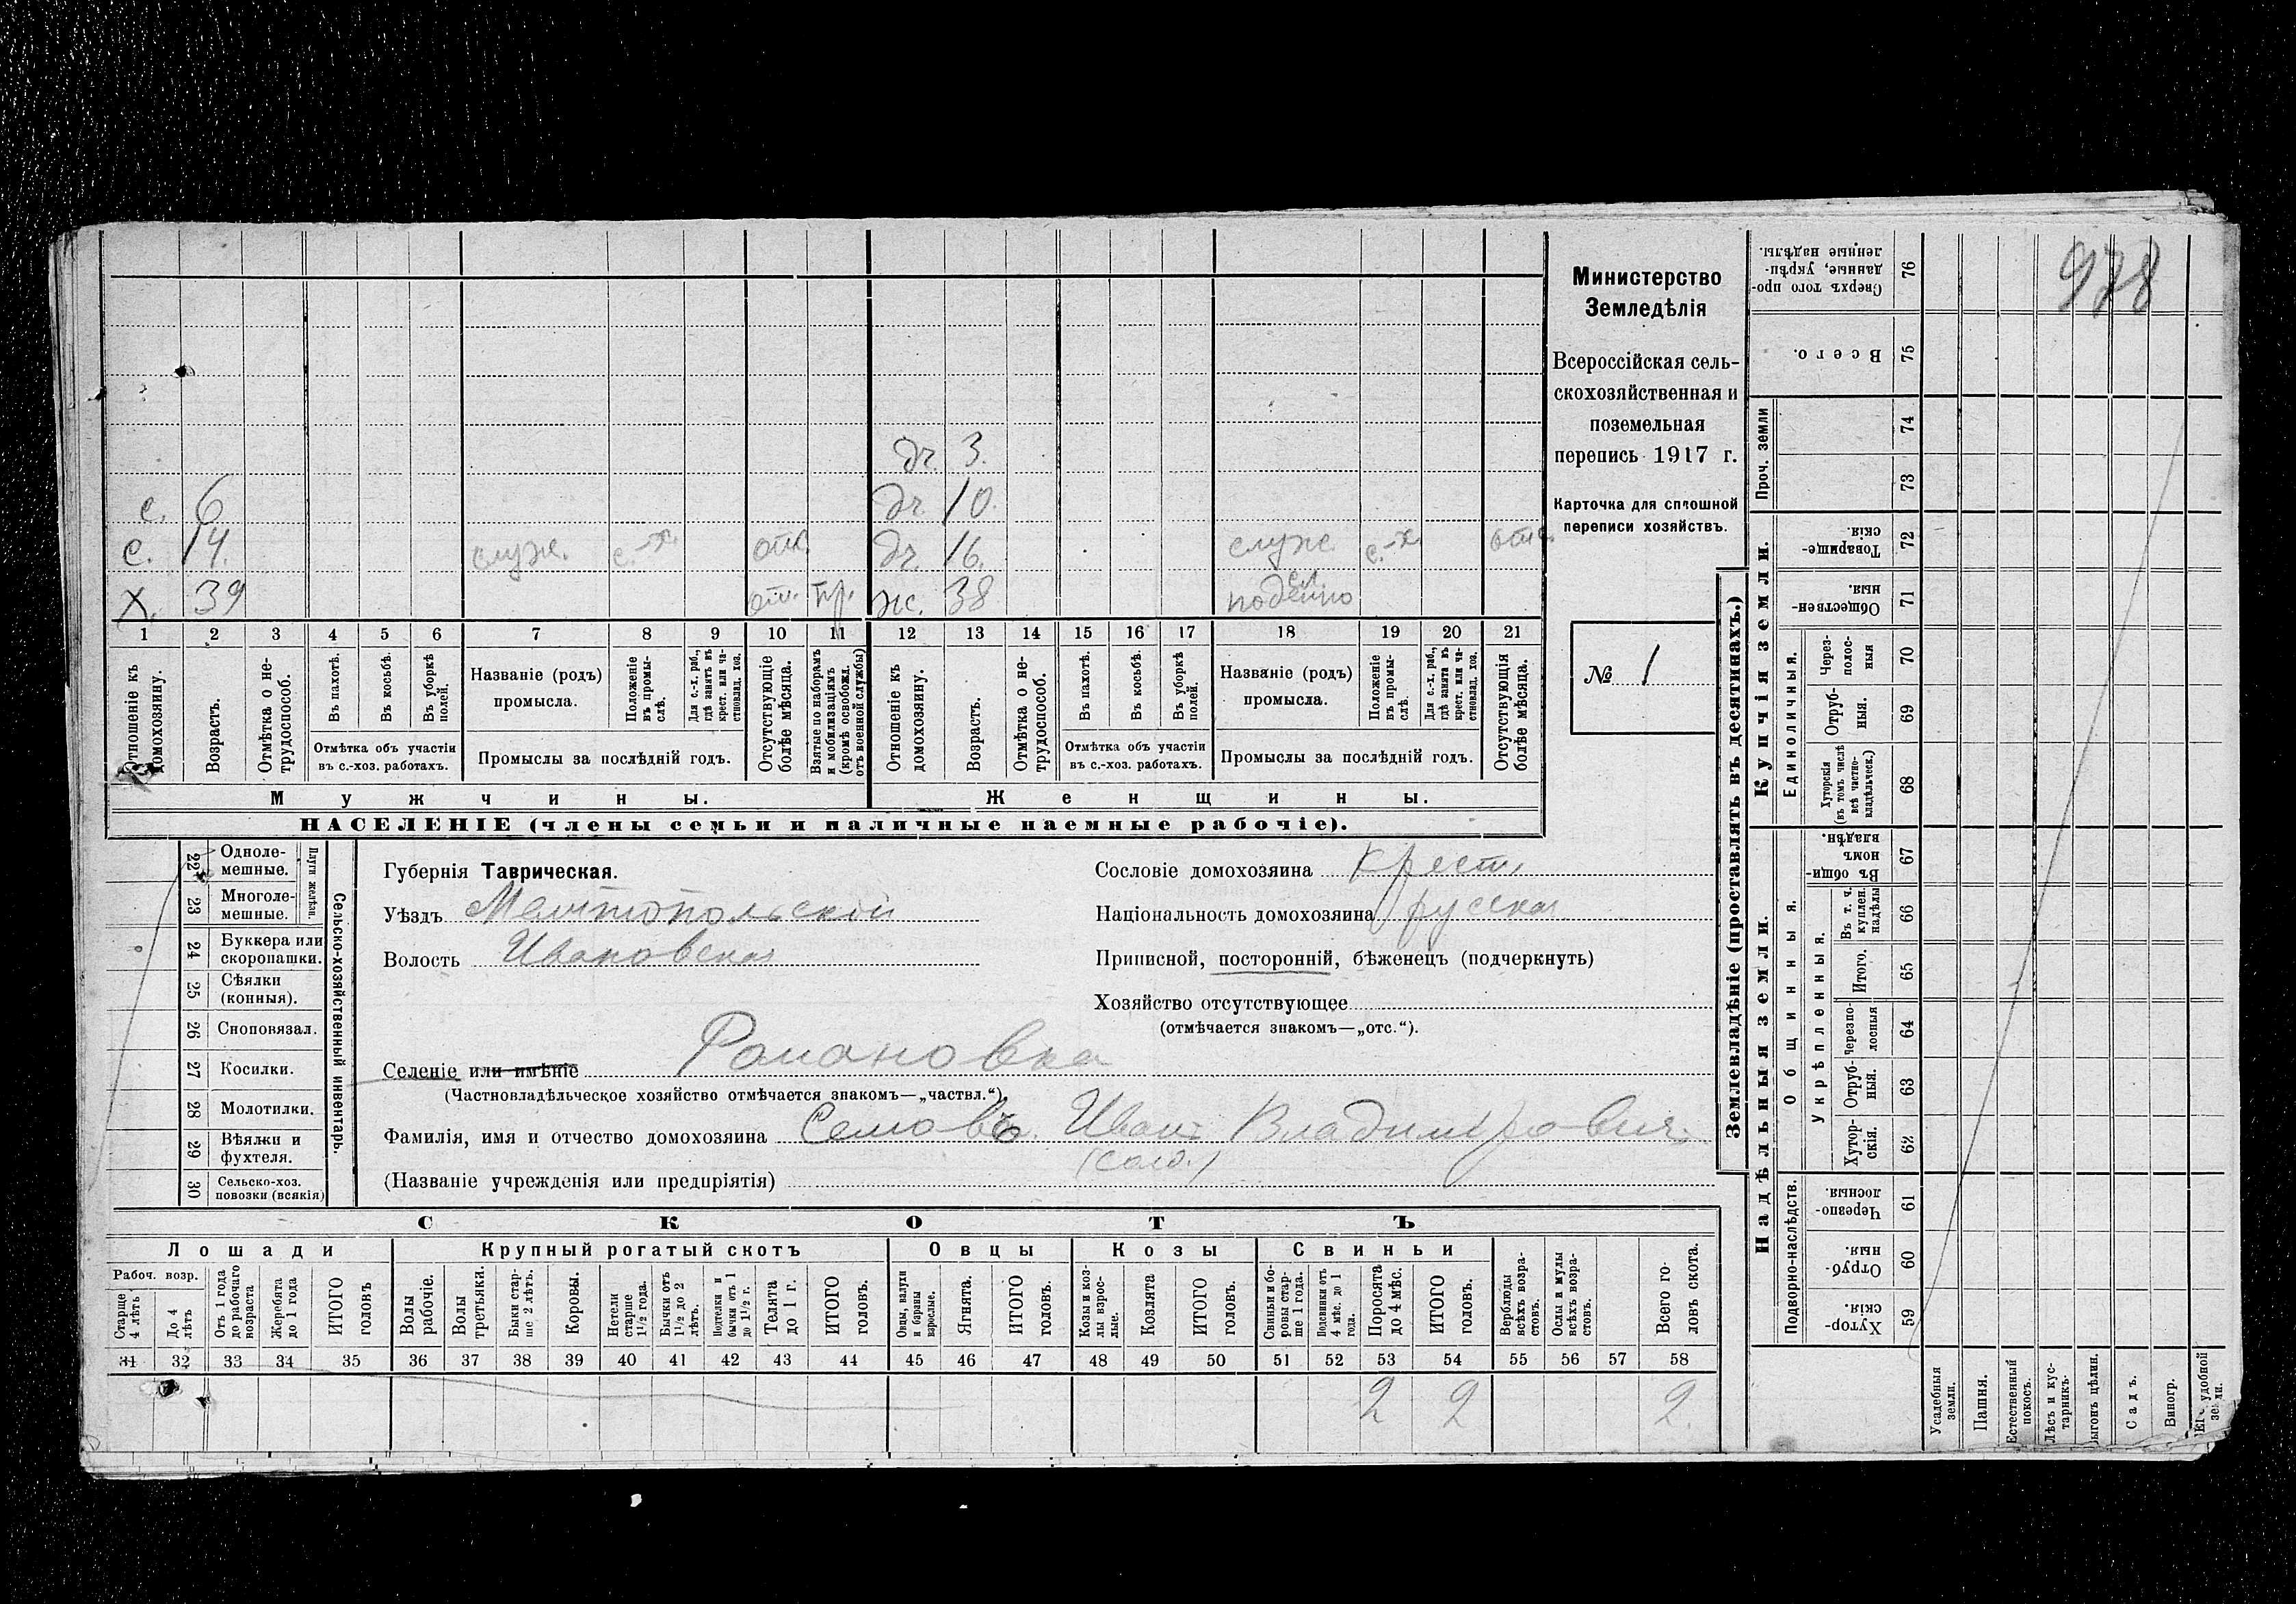 978
Министерство
Земледѣлія
Всероссійская сель-
скохозяйственная и
поземельная
перепись 1917 г.
Карточка для сплошной
переписи хозяйствъ.
№ 1
дч. 3.
с. 6 дч. 10.
с. 14. служ. с.-х. отс. дч. 16. служ. с.-х. отс.
Х. 39 отс. пр. ж. 38 поденно
1 2 3 4 5 6 7 8 9 10 11 12 13 14 15 16 17 18 19 20 21
Отношеніе къ домохозяину.
Возрастъ.
Отмѣтка о не-трудоспособ.
Въ пахотѣ.
Въ косьбѣ.
Въ уборкѣ полей.
Отмѣтка объ участіи
въ с.-хоз. работахъ.
Названіе (родъ)
промысла.
Положеніе въ промы-слѣ.
Для с.-х. раб., гдѣ занятъ въ крест. или ча-стновлад. хоз.
Промыслы за послѣдній годъ.
Отсутствующіе болѣе мѣсяца.
Взятые по наборамъ и мобилизаціямъ (кромѣ освобожд. отъ военной службы)
Отношеніе къ домохозяину.
Возрастъ.
Отмѣтка о не-трудоспособ.
Въ пахотѣ.
Въ косьбѣ.
Въ уборкѣ полей.
Отмѣтка объ участіи
въ с.-хоз. работахъ.
Названіе (родъ)
промысла.
Положеніе въ промы-слѣ.
Для с.-х. раб., гдѣ занята въ крест. или ча-стновлад. хоз.
Промыслы за послѣдній годъ.
Отсутствующія болѣе мѣсяца.
Мужчины. Женщины.
НАСЕЛЕНІЕ (члены семьи и наличные наемные рабочіе).
22 Одноле-
мешные.
23 Многоле-
мешные.
Плуги желѣзн.
24 Буккера или
скоропашки.
25 Сѣялки
(конныя).
26 Сноповязал.
27 Косилки.
28 Молотилки.
29 Вѣялки и
фухтеля.
30 Сельско-хоз.
повозки (всякія)
Сельско-хозяйственный инвентарь.
Губернія Таврическая.
Уѣздъ Мелитопольскій
Волость Ивановская
Сословіе домохозяина крест.
Національность домохозяина русская
Приписной, посторонній, бѣженецъ (подчеркнуть)
Хозяйство отсутствующее
(отмѣчается знакомъ—„отс.“).
Селеніе или имѣніе Романовка
(Частновладѣльческое хозяйство отмѣчается знакомъ—„частвл.“).
Фамилія, имя и отчество домохозяина Семовъ Иванъ Владимировичъ
(Названіе учрежденія или предпріятія)
СКОТЪ
Лошади Крупный рогатый скотъ Овцы Козы Свиньи
Рабоч. возр.
Старше 4 лѣтъ
До 4 лѣтъ
Отъ 1 года до рабочаго возраста
Жеребята до 1 года
ИТОГО головъ
Волы рабочіе.
Волы третьяки.
Быки стар-ше 2 лѣтъ.
Коровы.
Нетели старше 1½ года.
Бычки отъ 1½ до 2 лѣтъ.
Подтелки и бычки отъ 1 до 1½ г.
Телята до 1 г.
ИТОГО головъ.
Овцы, валухи и бараны взрослые.
Ягнята.
ИТОГО головъ.
Козы и коз-лы взрос-лые.
Козлята
ИТОГО головъ.
Свиньи и бо-ровы стар-ше 1 года.
Подсвинки отъ 4 мѣс. до 1 года.
Поросята до 4 мѣс.
ИТОГО головъ.
Верблюды всѣхъ возра-стовъ.
Ослы и мулы всѣхъ возра-стовъ.
Всего го-ловъ скота.
31 32 33 34 35 36 37 38 39 40 41 42 43 44 45 46 47 48 49 50 51 52 53 54 55 56 57 58
2 2 2.
Землевладѣніе (проставлять въ десятинахъ.)
Надѣльныя земли. Купчія земли.
Проч. земли
Подворно-наслѣдств.
Общинныя.
Укрѣпленныя.
Единоличныя.
76 Сверхъ того про-данные, укрѣп-ленные надѣлы.
75 Всего.
74
73
72 Товарище-скія.
71 Обществен-ныя.
70 Через-полос-ныя
69 Отруб-ныя.
68 Хуторскія (въ томъ числѣ всѣ частно-владѣльческ.)
67 Въ общин-номъ владѣн.
66 Въ т. ч. куплен. надѣлы
65 Итого.
64 Черезпо-лосныя
63 Отруб-ныя.
62 Хутор-скія.
61 Черезпо-лосныя.
60 Отруб-ныя.
59 Хутор-скія.
Усадебныя земли.
Пашня.
Естественный покосъ.
Лѣсъ и кус-тарникъ.
Выгонъ цѣлин.
Садъ.
Виногр.